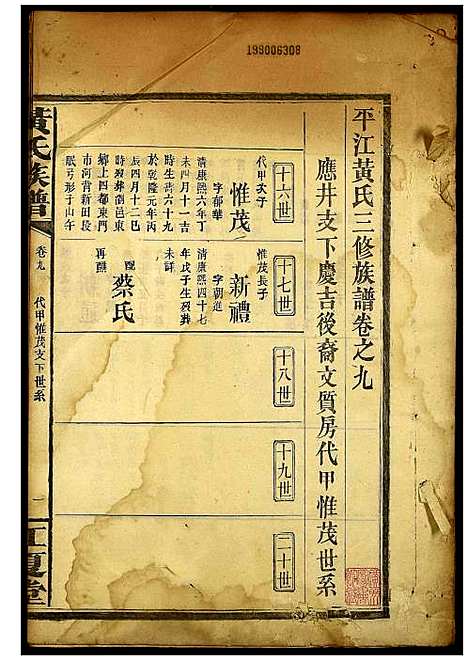 199006308
平江黃氏三修族譜卷之九
應井支下慶吉後裔文質房代甲惟茂世系
十六世
代甲次子
惟茂
字郁華
清康熙六年丁
未四月十一吉
時生壽六十九
於乾隆元年丙
辰四月十二巳
時歿葬劉邑東
鄉上四都東門
市河背新田段
眠弓形子山午
十七世
惟茂長子
新禮
字朝進
清康熙四十七
年戊子生歿葬
未詳
配
蔡氏
再醮
十八世
十九世
二十世
黃氏族譜
卷九
代甲惟茂支下世系
一
江夏堂